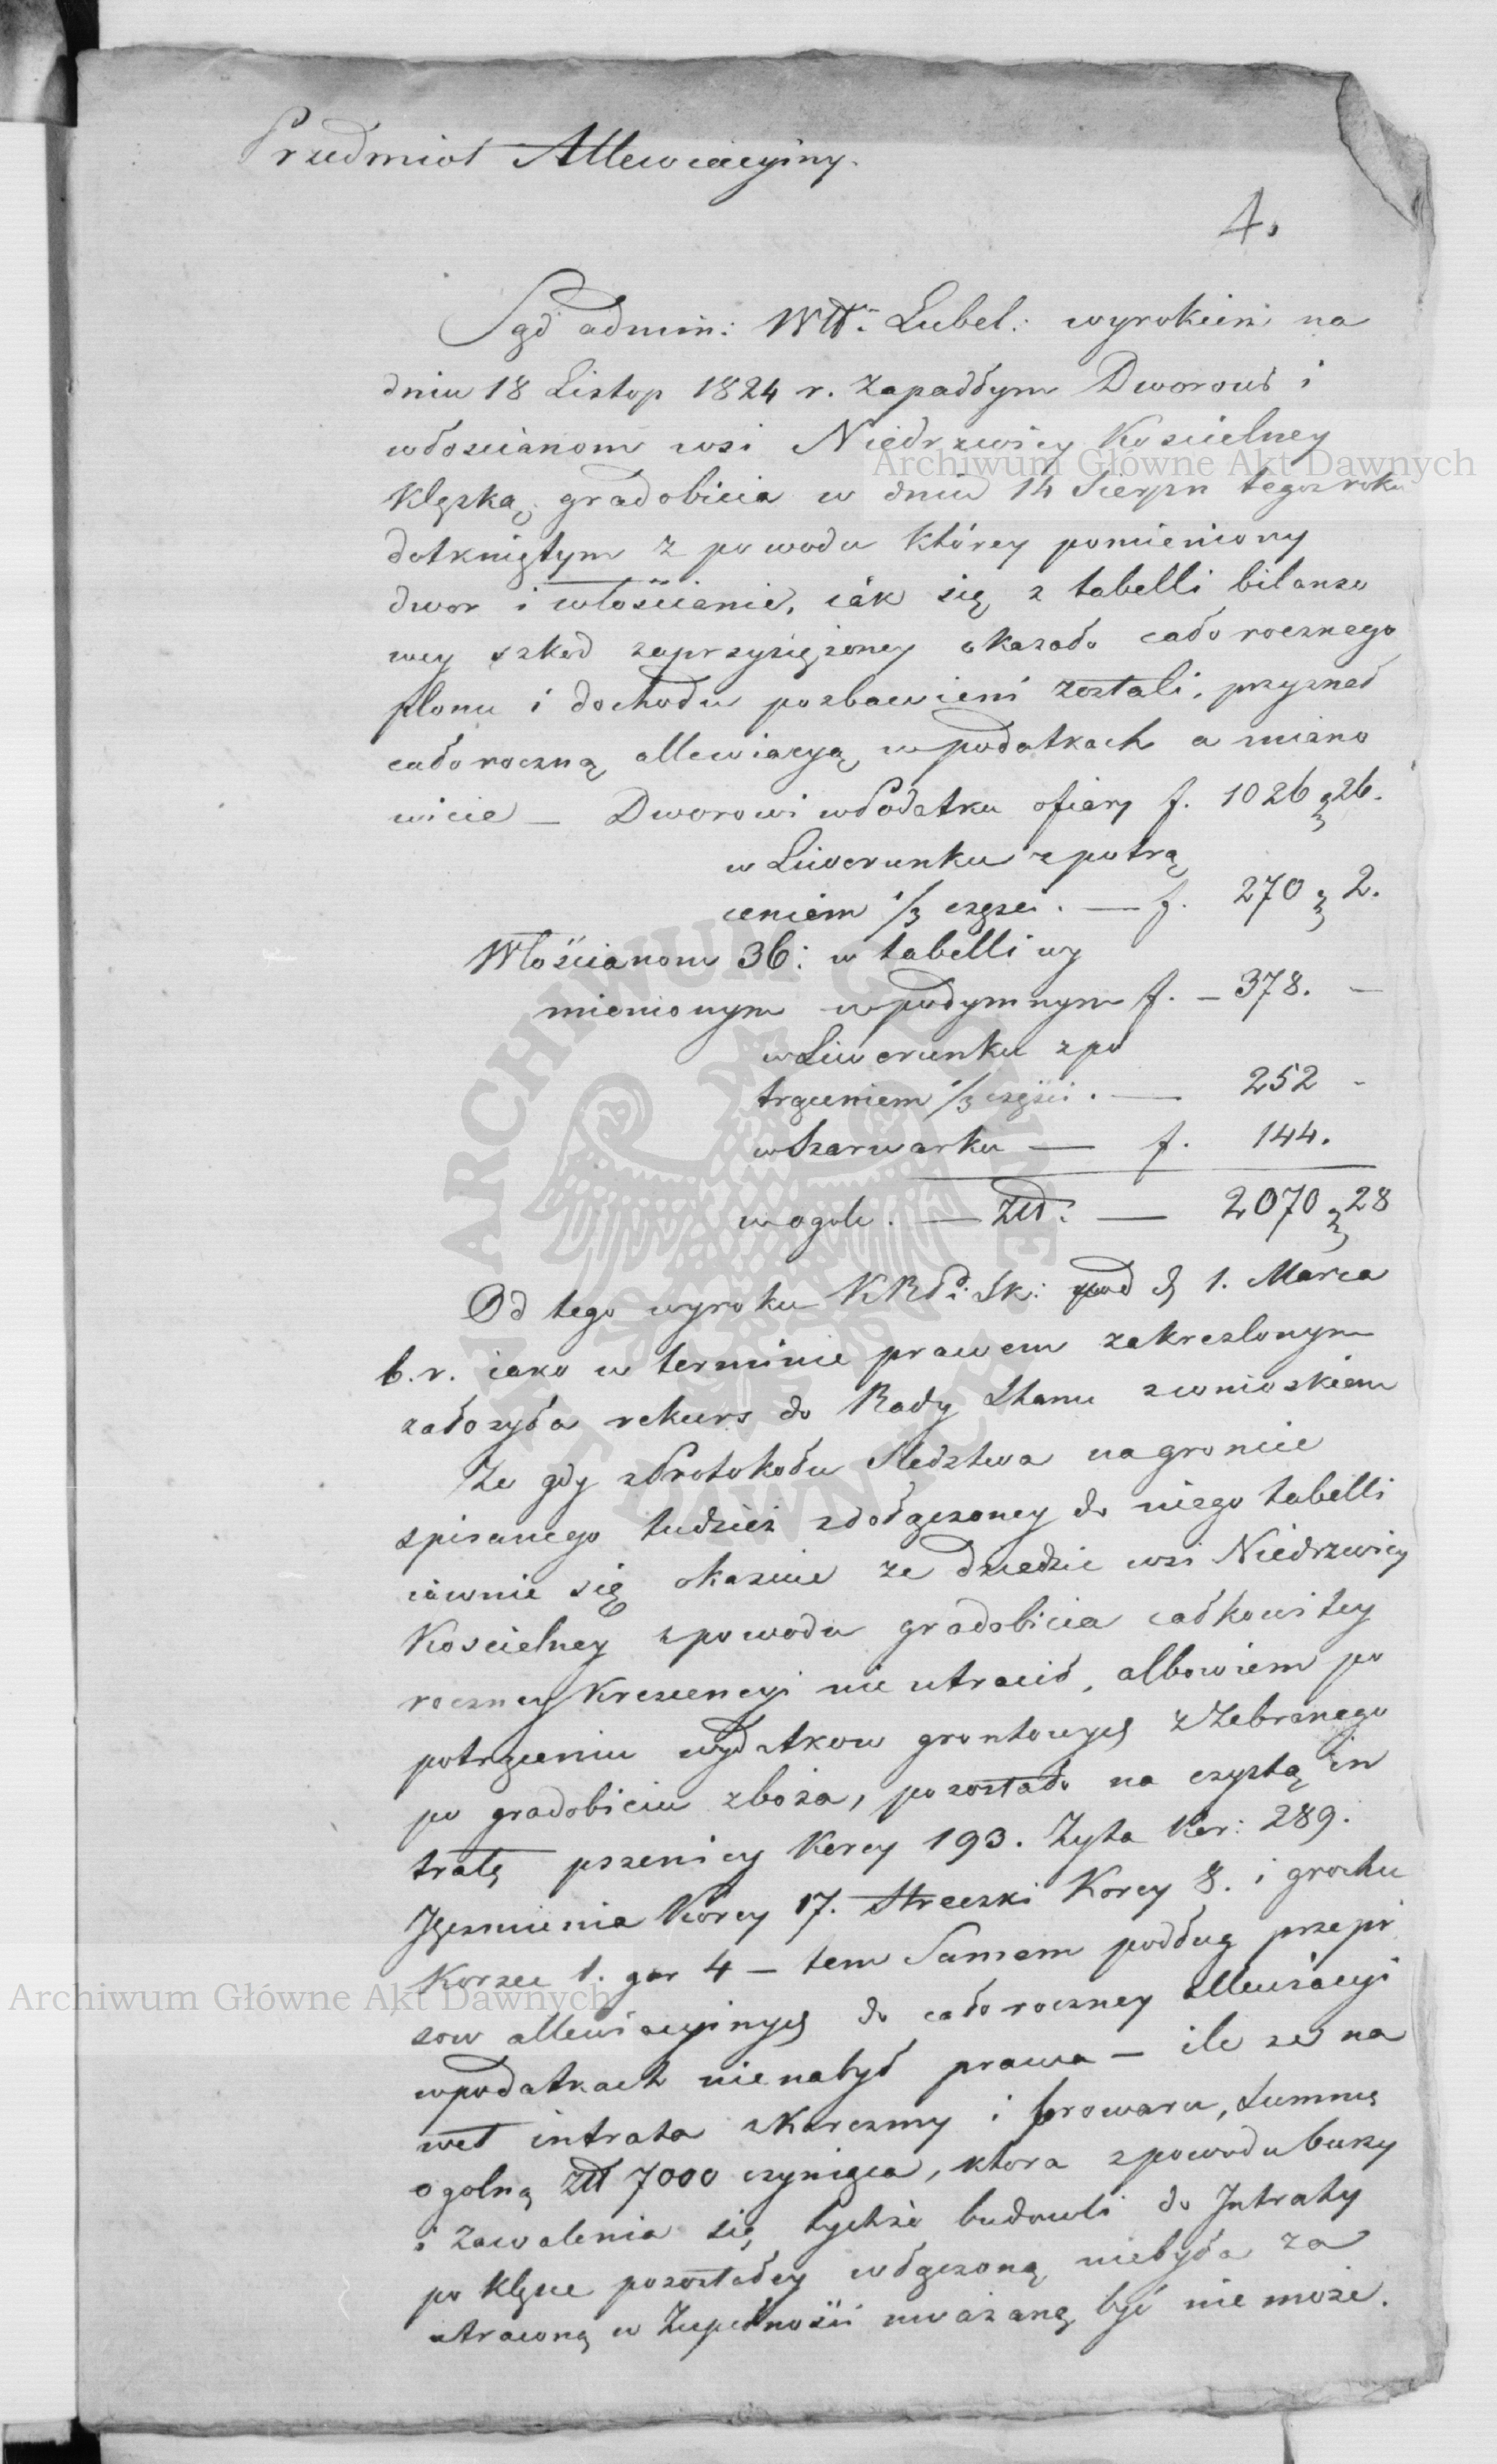 Przedmiot Allewiacyiny.
4.
Sąd admin: Wtt. Lubel: wyrokiem na
dniu 18 Listop 1824 r. zapadłym Dworowi i
włoscianom wsi Niedrzwicy Koscielney
Klęską gradobicia w dniu 14 Sierpn tegoż roku
dotkniętym z powodu którey pomieniony
dwor i włościanie, iak się z tabelli bilanso
wey szkod zaprzysiężoney okazało całorocznego
plonu i dochodu pozbawieni zostali, przyznał
całoroczną allewiacyą w podatkach a miano
wicie — Dworowi w Podatku ofiary f. 1026 g 26.
w Liwerunku z potrą
ceniem 1/3 części. — f. 270 g 2.
Włościanom 36: w tabelli wy
mienionym w podymnym f. — 378. —
w Liwerunku z po
trąceniem 1/3 części. — 252 -
w Szarwarku — f. 144.
w ogole. — Złł: — 2070 g 28
Od tego wyroku KRP i Sk: pod d 1. Marca
b.r. iako w terminie prawem zakreslonym
założyła rekurs do Rady Stanu z wnioskiem
Ze gdy z Protokołu Sledztwa na gruncie
spisanego tudzież z dołączoney do niego tabelli
iawnie się okazuie ze dziedzic wsi Niedrzwicy
Koscielney z powodu gradobicia całkowitey
roczney Krescencyi nie utracił, albowiem po
potrąceniu wydatkow gruntowych z zebranego
po gradobiciu zboża, pozostało na czystą in
tratę pszenicy Korcy 193. Zyta Kor: 289.
Jęczmienia Korcy 17. Streczki Korcy 8. i grochu
Korzec 1. gar 4 — tem Samem podług przepi
sow allewiacyinych do całoroczney Allewiacyi
w podatkach nie nabył prawa — ile ze na
wet intrata z Karczmy i browaru, Summę
ogolną Złł 7000 czyniąca, ktora z powodu burzy
i zawalenia się tychże budowli do Intraty
po klęsce pozostałey włączoną niebyła za
utraconą w Zupełności uważaną być nie może.
Archiwum Główne Akt Dawnych
Archiwum Główne Akt Dawnych
ARCHIWUM GŁÓWNE AKT DAWNYCH